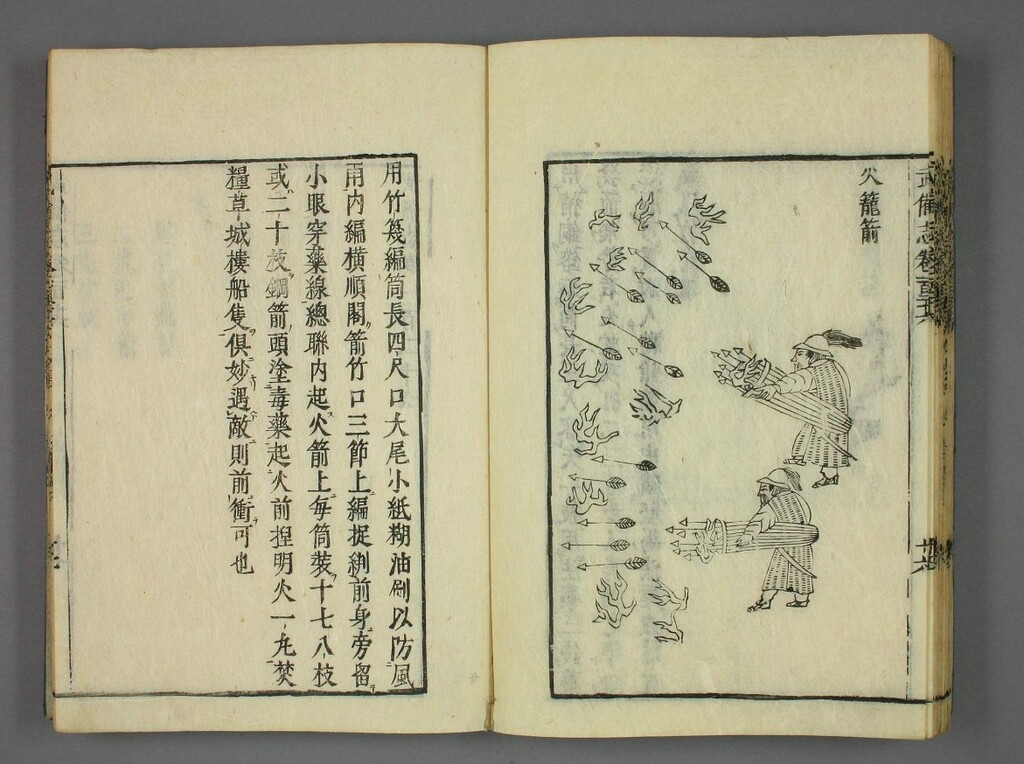 武備志卷百二十六
火籠箭
十六
用竹篾編筒長四尺口大尾小紙糊油刷以防風
雨内編橫順閣箭竹口三節上編捉綁前身旁留
小眼穿藥線總聯内起火箭上每筒裝十七八枝
或二十枝鋼箭頭塗毒藥起火前揑明火一九焚
糧草城樓船隻俱妙遇敵則前衝可也